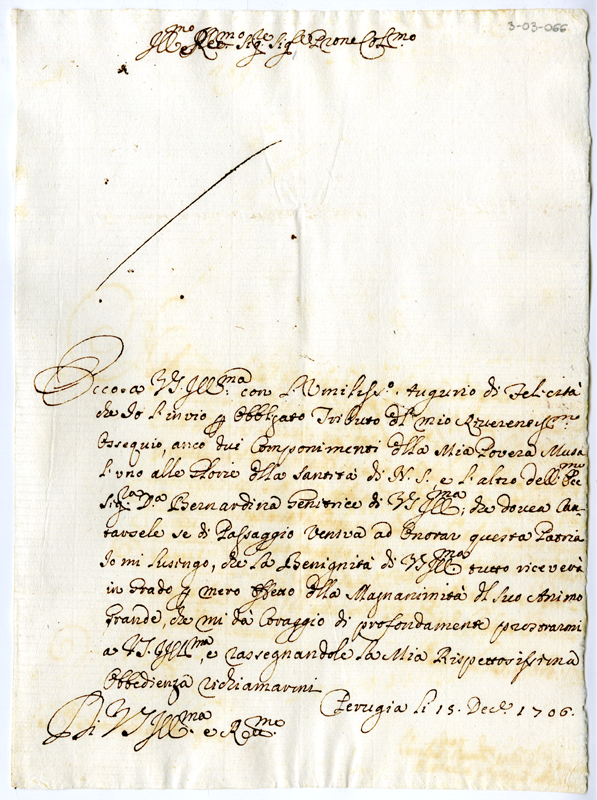 3-03-066
Ill.mo e Rev.mo Sig.re Sig.re e Prone Col.mo
Eccoro a VS. Ill.ma con l'Umiliss.o Augurio di Felicità
che Io l'invio p Obbligato Tributo dl mio Riverentiss.mo
Ossequio, anco dui Componimenti dlla Mia Povera Musa
l'uno alle Glorie dlla Santità di N.S., e l'altro dell'Ecc.ma
Sig.ra D.a Bernardina Genitrice di VS. Ill.ma, che dovea Can-
tarsele se di Passaggio Veniva ad Onorar questa Patria
Io mi lusingo, che la Benignità di VS Ill.ma tutto riceverà
in Grado p mero Effetto dlla Magnanimità dl Suo Animo
Grande, che mi dà Coraggio di profondamente prostrarmi
a VS. Ill.ma, e rassegnandole la Mia Rispettosissima
Obbedienza richiamarmi
Perugia li 15. Dec.e 1706.
Di VS Ill.ma e Rev.ma